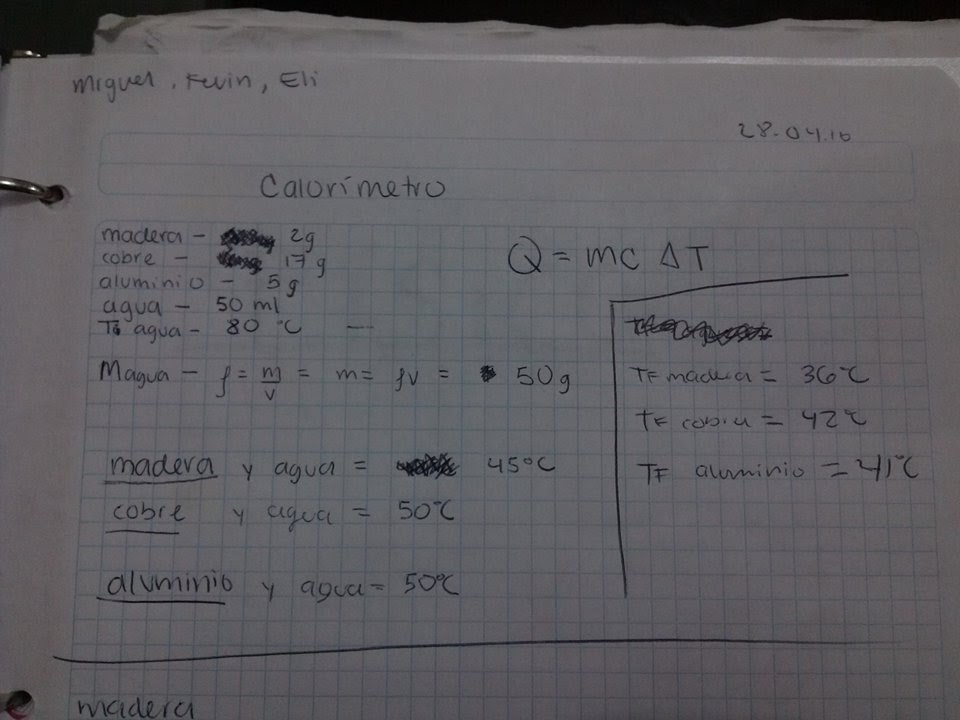 Miguel, Kevin, Eli
28-04-16
Calorímetro
madera - 2g
cobre - 17g
aluminio - 5g
agua - 50 ml
To agua - 80 °C
Q = mc ΔT
Magua - ρ = m/v = m = ρv = 50g
madera y agua = 45°C
cobre y agua = 50°C
aluminio y agua = 50°C
TF madera = 36°C
TF cobre = 42°C
TF aluminio = 41°C
madera